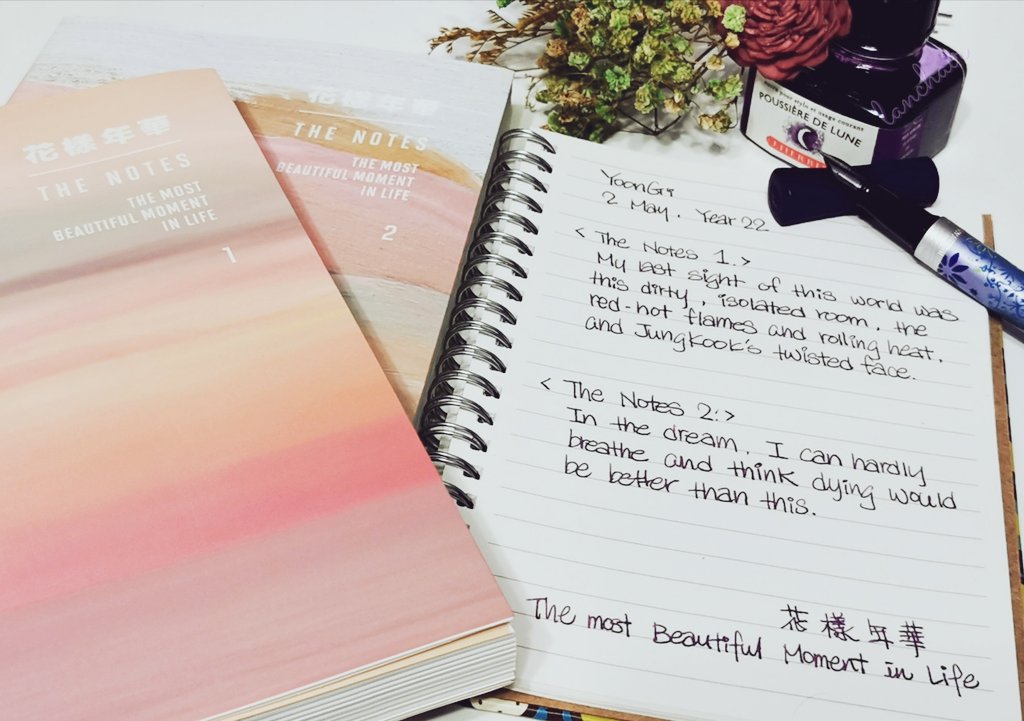 花樣年華
THE NOTES
THE MOST
BEAUTIFUL MOMENT
IN LIFE
1
花樣年華
THE NOTES
THE MOST
BEAUTIFUL MOMENT
IN LIFE
2
POUSSIÈRE DE LUNE
YoonGi
2 May. Year 22
< The Notes 1.>
My last sight of this world was
this dirty, isolated room, the
red-hot flames and rolling heat,
and Jungkook's twisted face.
< The Notes 2.>
In the dream, I can hardly
breathe and think dying would
be better than this.
花樣年華
The most Beautiful Moment in Life